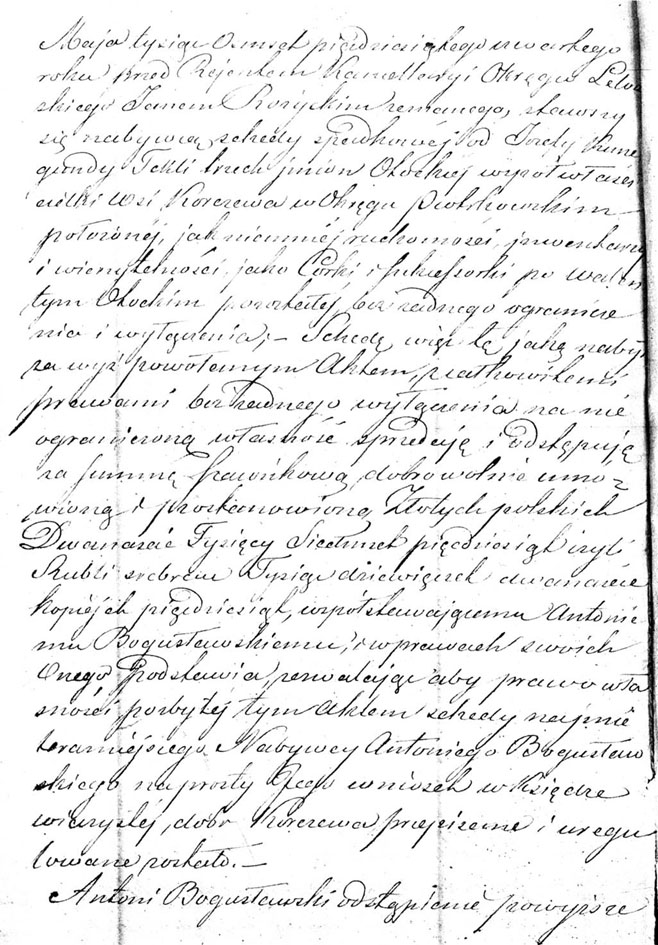 Maja tysiąc Osmset pięćdziesiątego czwartego
roku przed Rejentem Kancellaryi Okręgu
skiego Janem Rożyckim zeznanego, stawszy
się nabywcą schedy spadkowej od Józefy Kune
gundy Tekli trzech imion Otockiej współwłaści
cielki Wsi Korczewa w Okręgu Piotrkowskim
położonej, jak niemniej ruchomości, inwentarzy
i wierzytelności jako Córki i sukcessorki po Walen
tym Otockim pozostałej bez żadnego ogranicze
nia i wyłączenia; – Schedę więc tę jaką nabył
za wyż powołanym Aktem, z całkowitemi
prawami bez żadnego wyłączenia na nie
ograniczoną własność sprzedaję i odstępuję
za summę szacunkową dobrowolnie umó-
wioną i postanowioną Złotych polskich
Dwanaście Tysięcy Siedmset pięćdziesiąt czyli
Rubli srebrem Tysiąc dziewięćset dwanaście
kopiejek pięćdziesiąt, współstawającemu Antonie
mu Bogusławskiemu, i w prawach swoich
Onego Podstawia, zezwalając aby prawo wła
sności pozbytej tym Aktem schedy na imie
teraźniejszego Nabywcy Antoniego Bogusław
skiego na prosty Jego wniosek w Księdze
wieczystej, dobr Korczewa przepisane i uregu
lowane zostało. –
Antoni Bogusławski odstąpienie powyższe